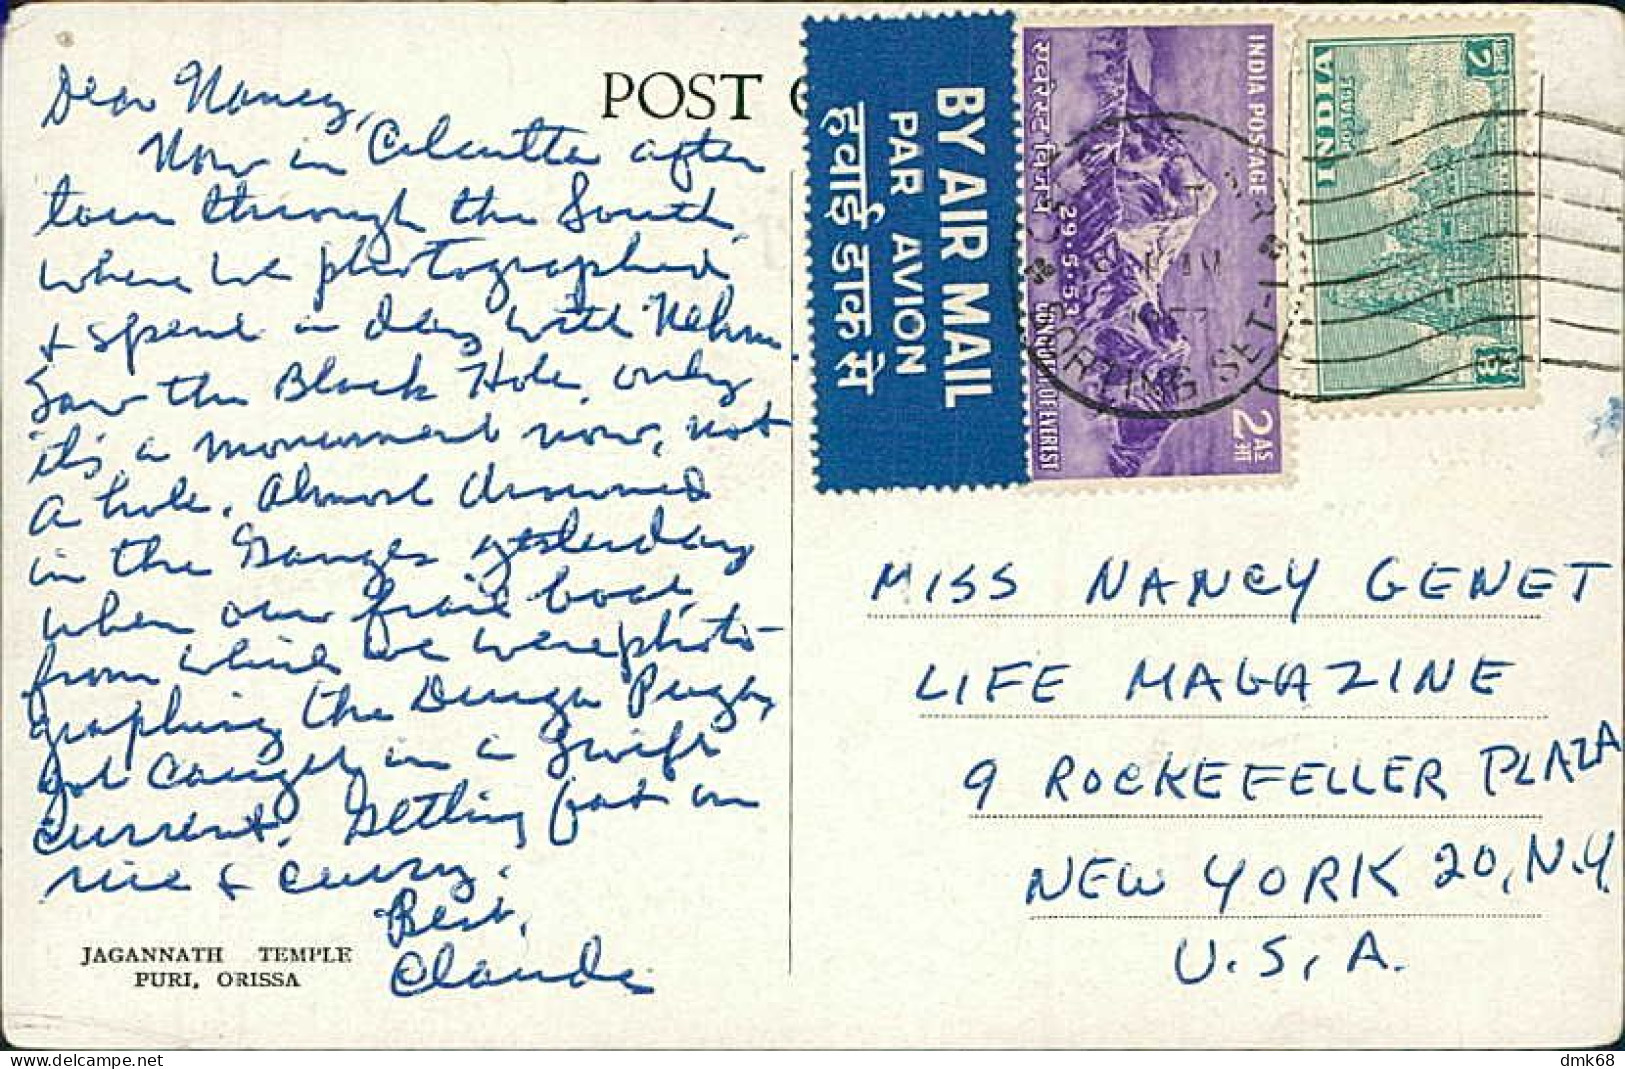 Dear Nancy,
Now in Calcutta after
tour through the South
where we photographed
& spent a day with Nehru.
Saw the Black Hole, only
it's a monument now, not
a hole. Almost drowned
in the Ganges yesterday
when our frail boat,
from which we were photo-
graphing the Durga Puja,
got caught in a swift
current. Getting fat on
rice & curry.
Best,
Claude
JAGANNATH TEMPLE
PURI, ORISSA
POST C
BY AIR MAIL
PAR AVION
हवाई डाक से
INDIA POSTAGE
एवरेस्ट विजय
29·5·53
CONQUEST OF EVEREST
2 AS
आ
SORTING
SET-1
INDIA
POSTAGE
MISS NANCY GENET
LIFE MAGAZINE
9 ROCKEFELLER PLAZA
NEW YORK 20, N.Y.
U.S.A.
dmk68
delcampe.net